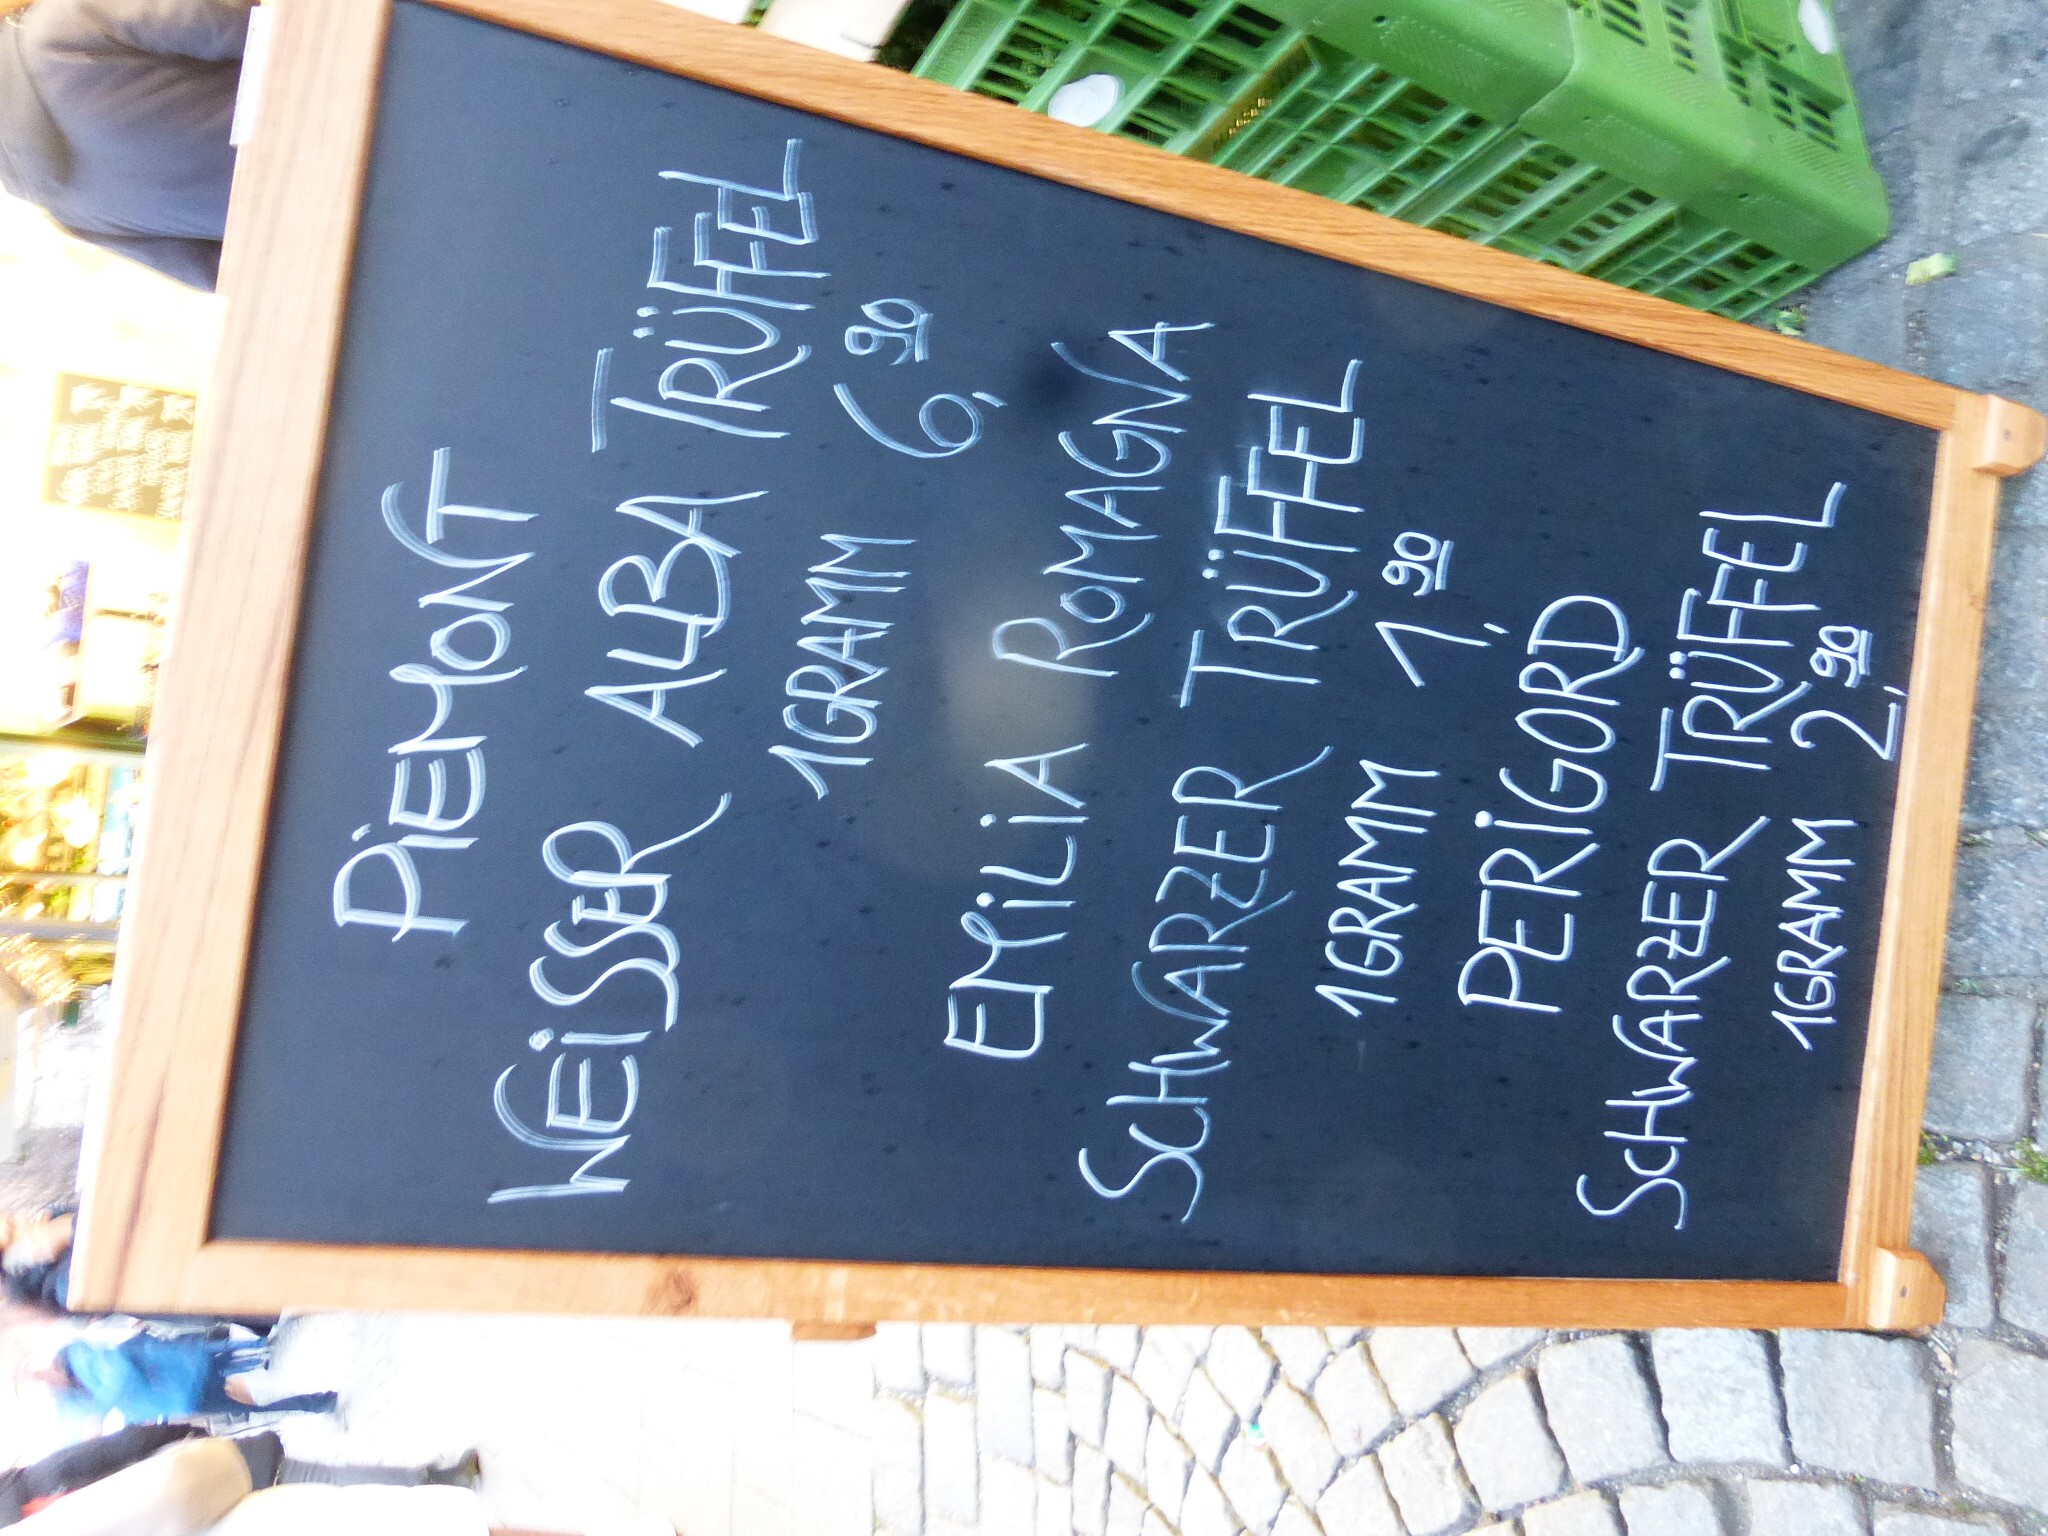 PiEMONT
WEiSSER ALBA TRÜFFEL
1GRAMM 6,90
EMiLiA ROMAGNA
SCHWARZER TRÜFFEL
1GRAMM 1,90
PERiGORD
SCHWARZER TRÜFFEL
1GRAMM 2,90